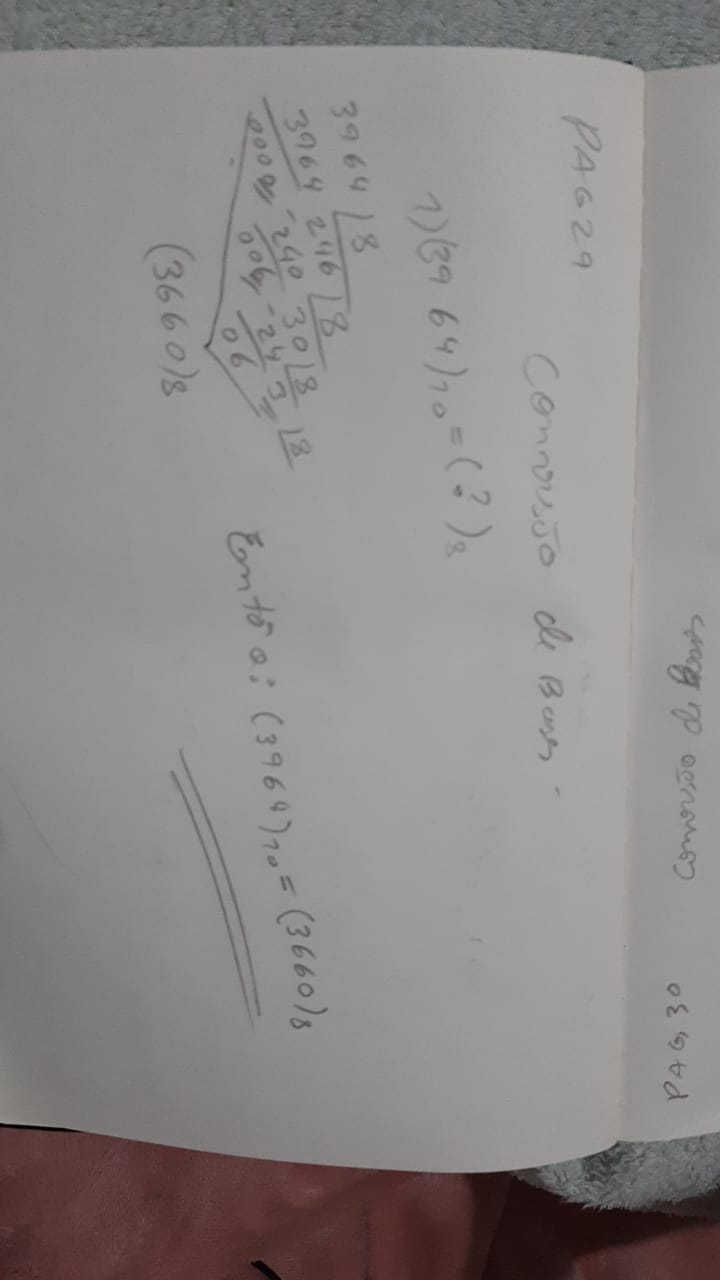 PAG 29
Conversão de Bases.
1) (3964)10 = (?)8
3964 | 8
3964 246 | 8
0000 -240 30 | 8
006 -24 3 | 8
06
(3660)8
Então: (3964)10 = (3660)8
PAG 30
Conversão de Bases